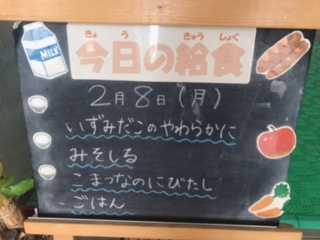 MILK
きょう きゅうしょく
今日の給食
2月8日(月)
いずみだこのやわらかに
みそしる
こまつなのにびたし
ごはん